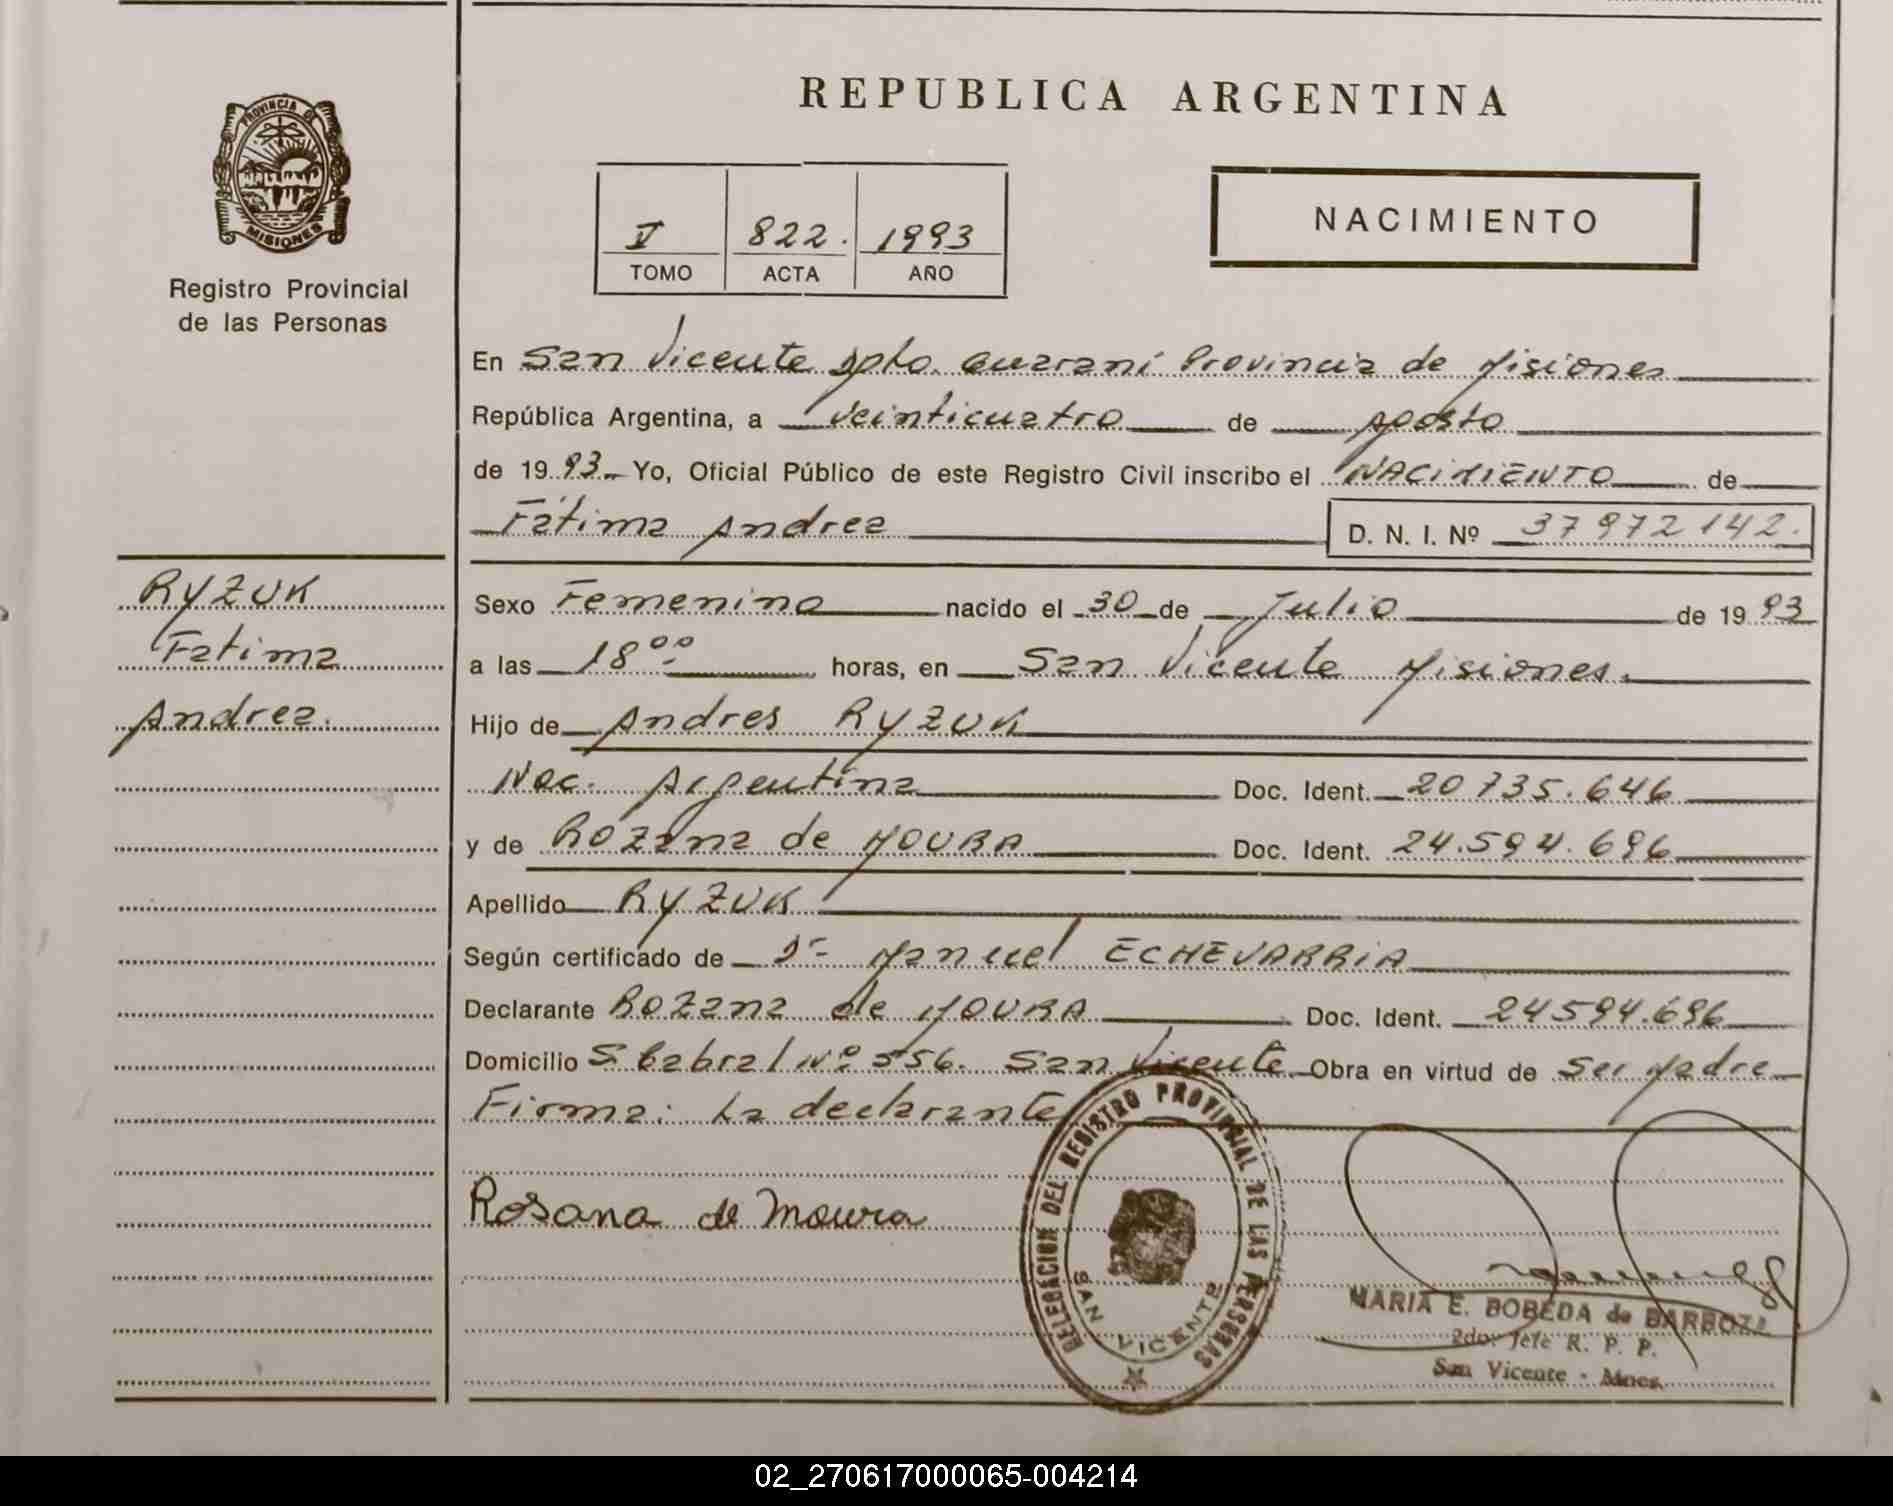 REPUBLICA ARGENTINA
PROVINCIA DE
MISIONES
Registro Provincial
de las Personas
V 822. 1993
TOMO ACTA AÑO
NACIMIENTO
En San Vicente Dpto. Guaraní Provincia de Misiones
República Argentina, a veinticuatro de Agosto
de 1993 Yo, Oficial Público de este Registro Civil inscribo el NACIMIENTO de
Fátima Andrea D. N. I. Nº 37972142.
RYZUK
Fatima
Andrea.
Sexo Femenino nacido el 30 de Julio de 1993
a las 18 ºº horas, en San Vicente Misiones.
Hijo de Andres RYZUK
Nac. Argentina Doc. Ident. 20735.646
y de ROZana de MOURA Doc. Ident. 24.594.696
Apellido RYZUK
Según certificado de Manuel ECHEVARRIA
Declarante ROZana de MOURA Doc. Ident. 24594.696
Domicilio S. Cabral Nº 556. San Vicente. Obra en virtud de Ser Madre
Firma: La declarante
Rosana de Moura
DELEGACION DEL REGISTRO PROVINCIAL DE LAS PERSONAS
SAN VICENTE
MARIA E. BOBEDA de BARBOZA
2do. Jefe R. P. P.
San Vicente - Mnes.
02_270617000065-004214